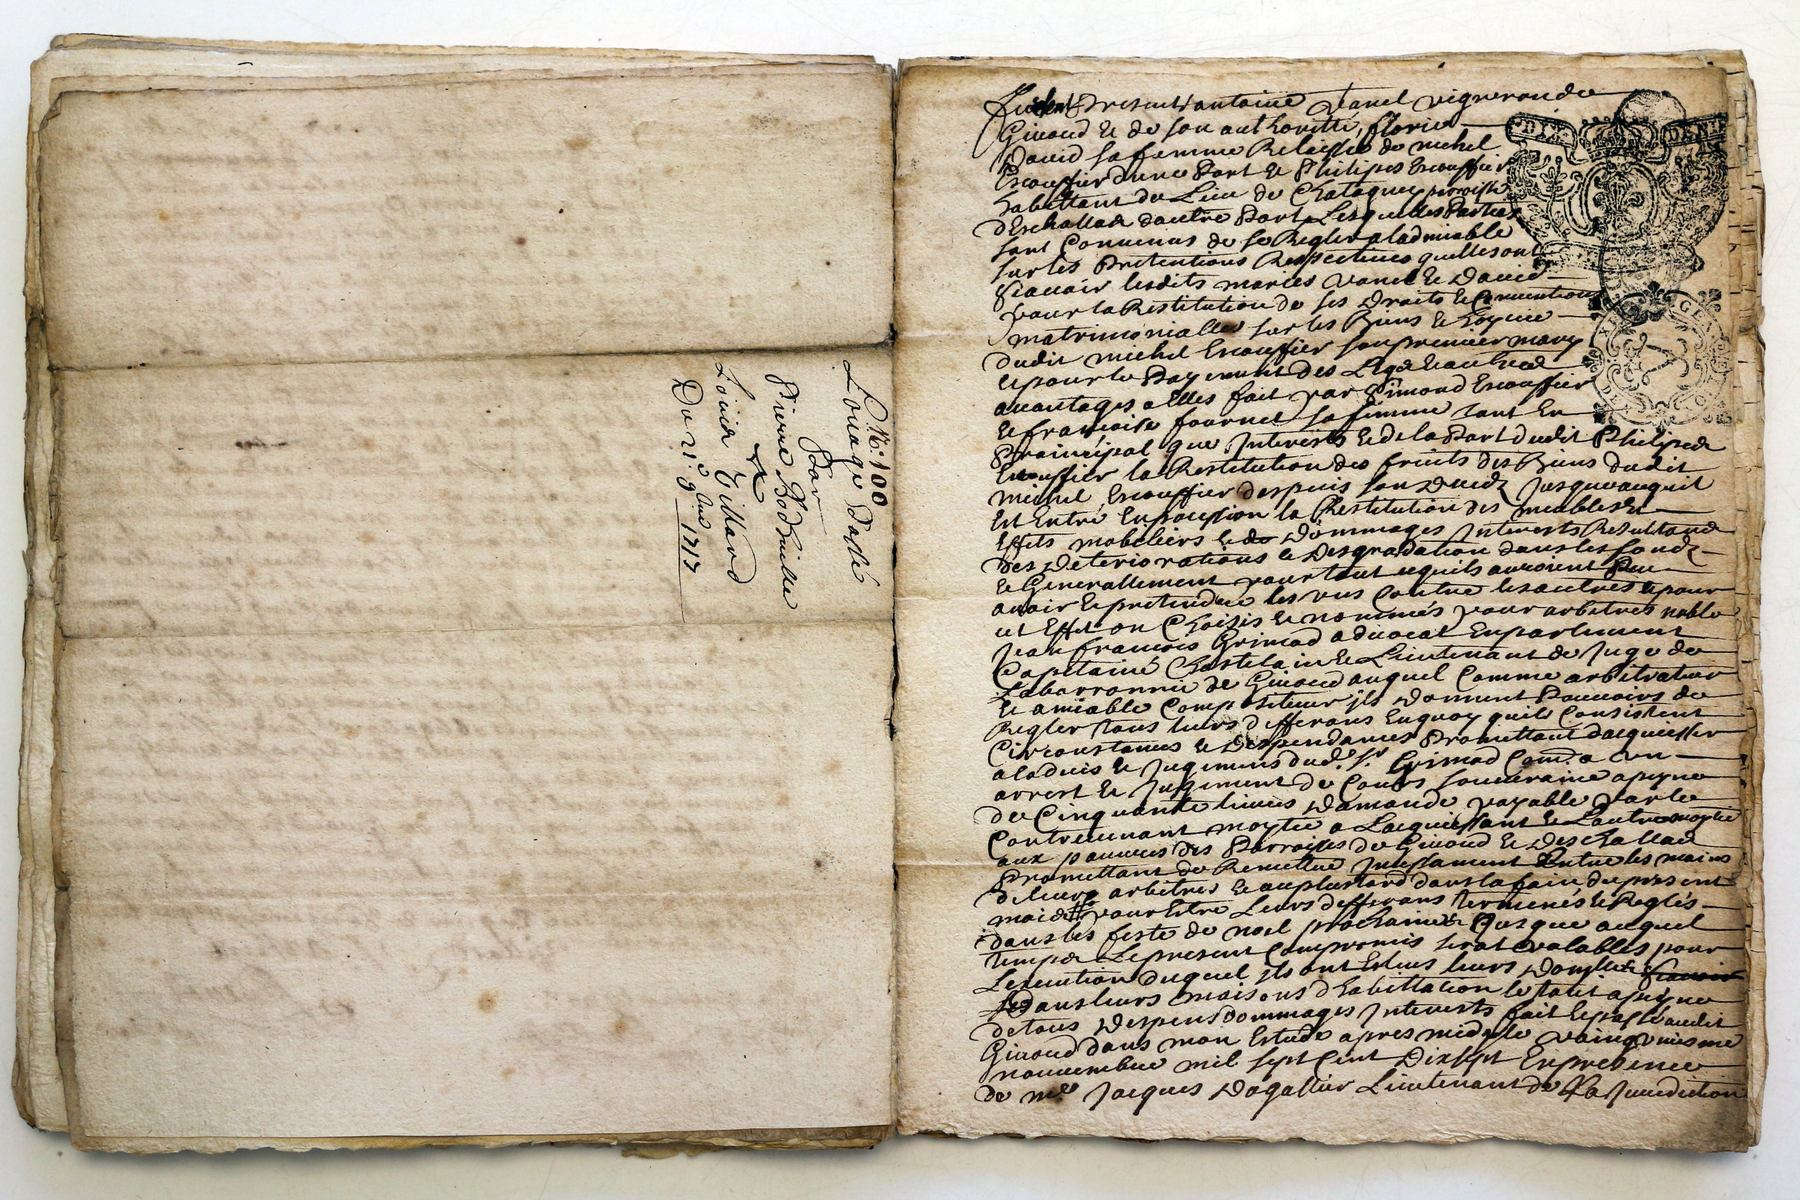 N.° 100
Louage passé
Par
Pierre
&
Louis Tillard
Du 9.bre 1717
present antoine Vanel vigneron de
Givord & de son authoritté, florie
David sa femme Relaissée de michel
Escouffier d'une Part & Philipes Escouffier
habittant du Lieu de perroisse
dEschallas dautre Part Lesquelles Parties
sont Convenus de se Regler a ladmiable
sur les Pretentions Respectives quelles ont
scavoir lesdits mariés Vanel & David
pour la Restitution de ses Droits & Conventions
matrimonialles sur les Biens & hoyrie
dudit michel Escouffier son premier mary
& pour le Payement des Legs & autres
avantages a Elles fait par Simond Escouffier
& francoise fournel sa femme tant En
Prainçipal que Interests & de la Part dudit Philipes
Escouffier la Restitution des fruits des Biens dudit
michel Escouffier despuis son Deceds Jusques auquil
Est Entré En possession la Restitution des meubles &
Effets mobeliers & de Dommages Interests Resultand
des Deteriorations & Desgradation dans les fondz
& Generallement pour tout cequils auroient Peu
avoir & pretendre les uns Contre les autres & pour
cet Effet on Choisis & nommés pour arbitres noble
Jean francois Grimod advocat En parlement
Capitaine Chastelain & Lieutenant de Juge de
La barronnie de Givord auquel Comme arbitrateur
& amiable Compositeur ils donnent Pouvoirs de
Regler tous leurs differans En quoy quils Consistent
Circonstances & Despendances Promettant dacquiesser
a ladvis & Jugemens dud. Sr. Grimod Com.e a un
arrest & Jugement de Cours souveraine a peyne
de Cinquante livres Damande payable par le
Contrevenant moytié a Lacquiessant & Lautre moytié
aux pauvres des Parroisses de Givord & Deschallas
Promettant de Remettre Entre les mains
de leurs arbitres & au plus tard dans la fain du present
mois pour Estre Leurs differans terminés & Reglés
dans les feste de noel prochaines Jusque auquel
temps Le present Compromis serat valables pour
Lexecution duquel ils ont Esleus leurs Domilles
dans leurs maisons dhabittation le tout a peyne
de tous Despens Dommages Interests fait & passé audit
Givord dans mon Estude apres midy le vaingtuiesme
novembre mil sept Cent Dixsept En presence
de me Jacques Dagallier Lieutenant de La Jurediction